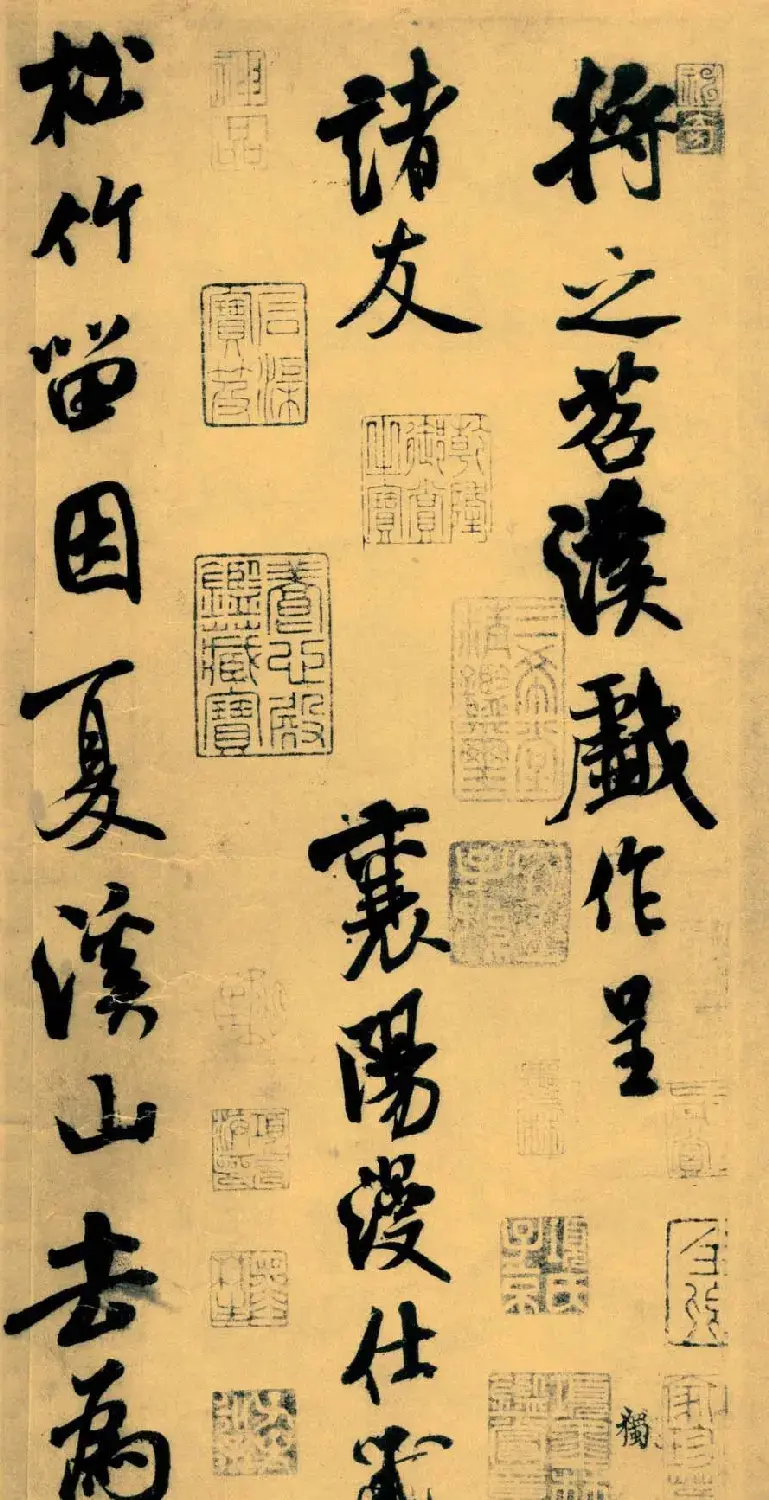 將之苕溪戲作呈
諸友
襄陽漫仕黻
松竹留因夏溪山去為
神品
石渠寶笈
乾隆御賞之寶
養心殿鑑藏寶
三希堂精鑑璽
宜子孫
獨